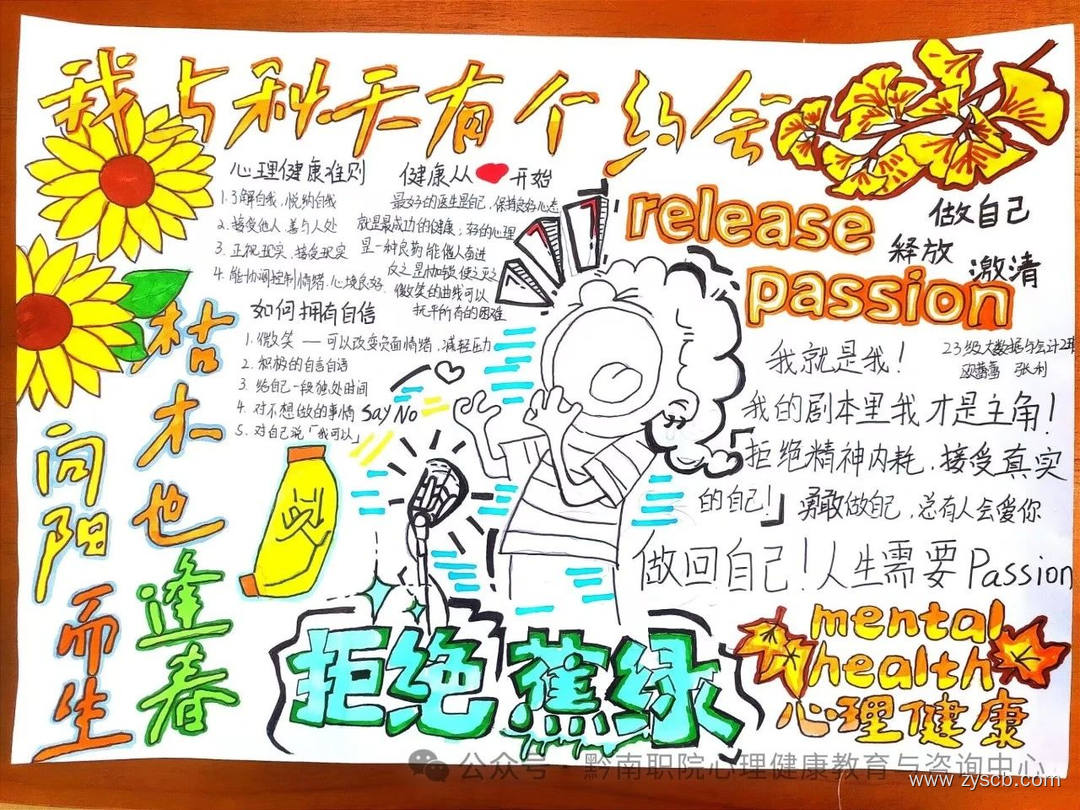 我与秋天有个约会
心理健康准则
1.了解自我,悦纳自我
2.接受他人 善与人处
3.正视现实,接受现实
4.能协调控制情绪,心境良好.
健康从 开始
最好的医生是自己,保持良好心态
就是最成功的健康;好的心理
是一种良药能催人奋进
反之是枷锁使之灭
微笑的曲线可以
抚平所有的困难
如何拥有自信
1.微笑 — 可以改变负面情绪,减轻压力
2.积极的自言自语
3.给自己一段独处时间
4.对不想做的事情 Say No
5.对自己说「我可以」
枯木也逢春
向阳而生
release
passion
做自己
释放
激清
我就是我!
23级大数据与会计2班
张利
我的剧本里我才是主角!
「拒绝精神内耗,接受真实
的自己!」勇敢做自己,总有人会爱你
做回自己!人生需要Passion
拒绝蕉绿
mental
health
心理健康
公众号·黔南职院心理健康教育与咨询中心
www.zyscb.com